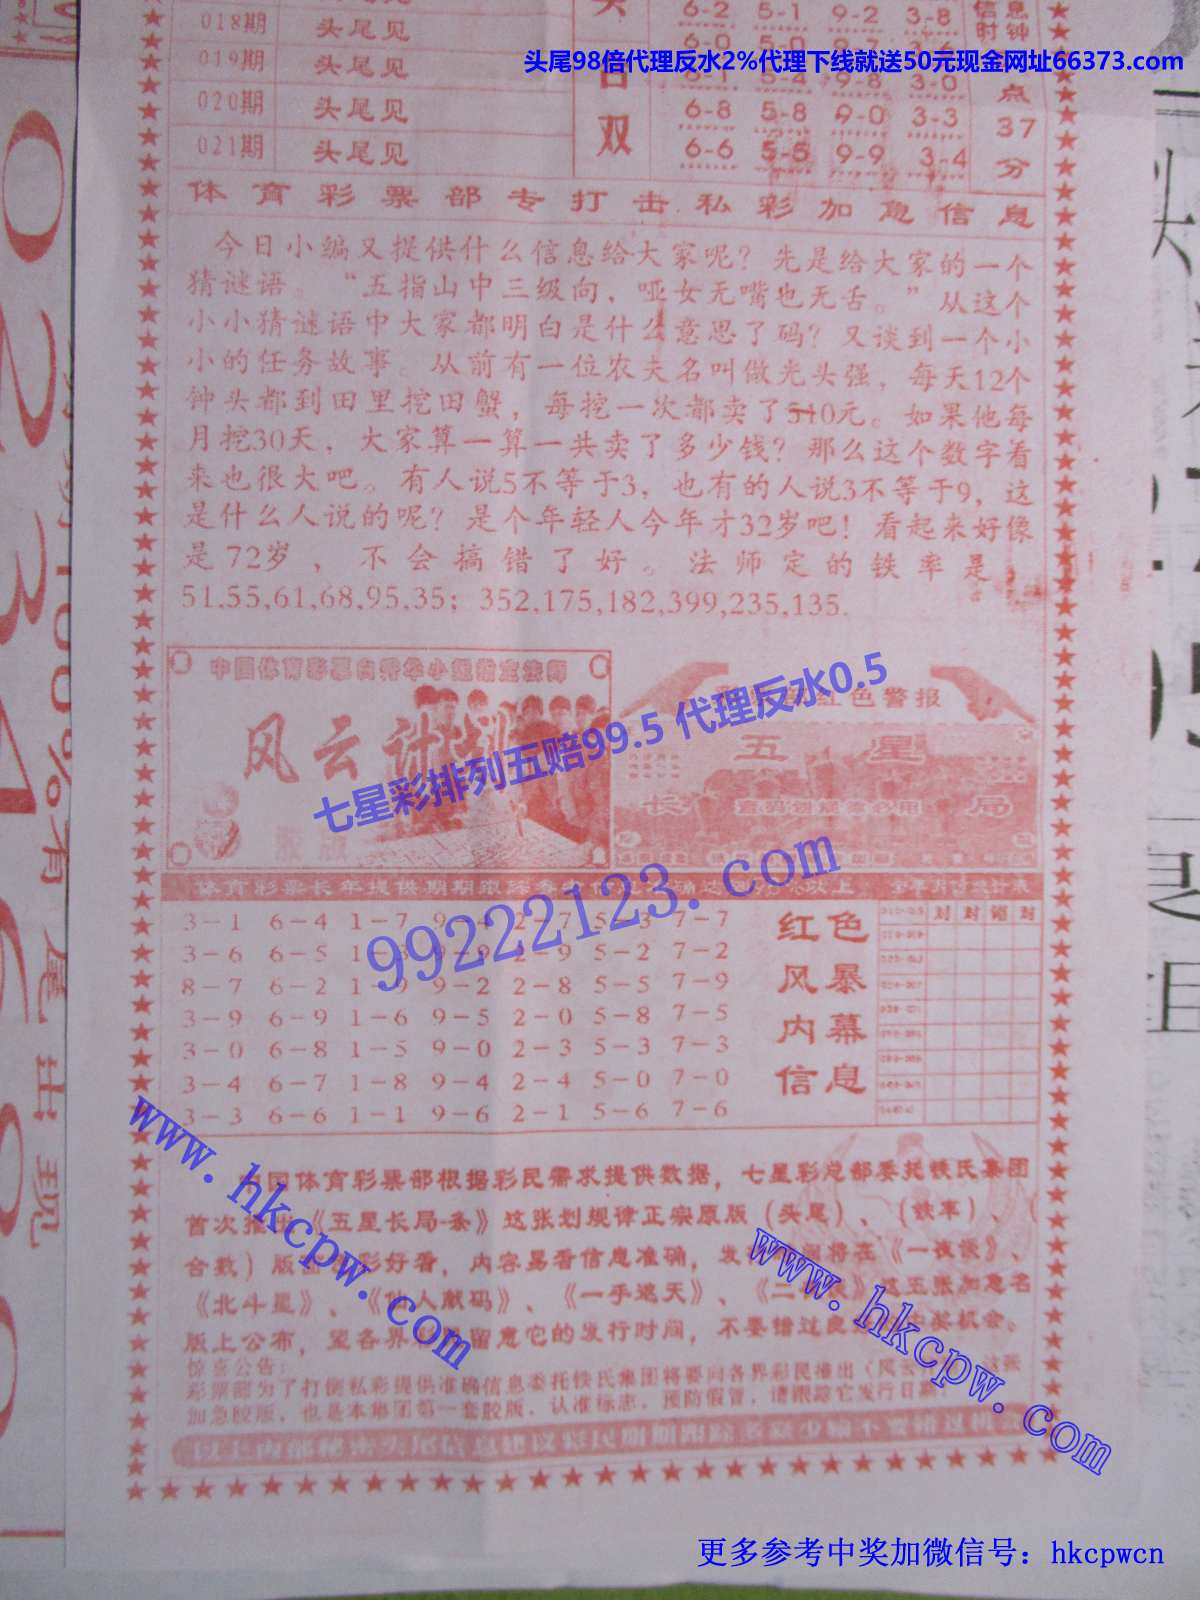 018期 头尾见
019期 头尾见
020期 头尾见
021期 头尾见
双
6-2 5-1 9-2 3-8
6-8 5-8 9-0 3-3
6-6 5-5 9-9 3-4
信息
时钟
点
37
分
头尾98倍代理反水2%代理下线就送50元现金网址66373.com
体育彩票部专打击私彩加急信息
今日小编又提供什么信息给大家呢？先是给大家的一个
猜谜语。“五指山中三级向，哑女无嘴也无舌。”从这个
小小猜谜语中大家都明白是什么意思了码？又谈到一个小
小的任务故事。从前有一位农夫名叫做光头强，每天12个
钟头都到田里挖田蟹，每挖一次都卖了510元。如果他每
月挖30天，大家算一算一共卖了多少钱？那么这个数字看
来也很大吧。有人说5不等于3，也有的人说3不等于9，这
是什么人说的呢？是个年轻人今年才32岁吧！看起来好像
是72岁，不会搞错了好。法师定的铁率是
51,55,61,68,95,35；352,175,182,399,235,135.
风云计划
红色警报
五星
长 局
七星彩排列五赔99.5 代理反水0.5
99222123.com
3-1 6-4 1-7 9-4 2-7 5-3 7-7
3-6 6-5 1-3 9-9 2-9 5-2 7-2
8-7 6-2 1-9 9-2 2-8 5-5 7-9
3-9 6-9 1-6 9-5 2-0 5-8 7-5
3-0 6-8 1-5 9-0 2-3 5-3 7-3
3-4 6-7 1-8 9-4 2-4 5-0 7-0
3-3 6-6 1-1 9-6 2-1 5-6 7-6
红色
风暴
内幕
信息
对 对 错 对
中国体育彩票部根据彩民需求提供数据，七星彩总部委托铁氏集团
首次推出《五星长局条》这张划规律正宗原版（头尾）、（铁率）、（
合数）版面 彩好看，内容易看信息准确，发 将在《一谈谈》、
《北斗星》、《仙人献码》、《一手遮天》、《二 》这五张加急名
版上公布，望各界 留意它的发行时间，不要错过良 奖机会。
惊喜公告：
彩票部为了打倒私彩提供准确信息委托铁氏集团将要向各界彩民推出《风云 这张
加急胶版，也是本集团第一套胶版，认准标志，预防假冒，请跟踪它发行日期
www.hkcpw.com
www.hkcpw.com
更多参考中奖加微信号：hkcpwcn